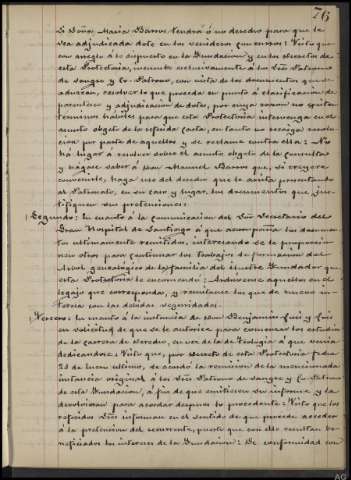 76
Dª Doña Maria Barros, tendrá ó no derecho para que le
sea adjudicada dote en los venideros concursos: Visto que
con arreglo á lo dispuesto en la Fundacion y en los decretos de
esta Protectoría, incumbe exclusivamente á los Sres Patronos
de sangre y to Patrono, con vista de los documentos que se
aduzcan, resolver lo que proceda en punto á clasificación de
parentesco y adjudicacion de dotes, por cuya razon no existen
terminos hábiles para que esta Protectoría intervenga en el
asunto objeto de la referida carta, en tanto no recaiga resolu-
ción por parte de aquellos y se reclame contra ella: No
há lugar á resolver sobre el asunto objeto de la consulta
y hágase saber á Don Manuel Barros que, si creyere
conveniente, haga uso del derecho que le asista presentando
al Patronato, en su caso y lugar, los documentos que jus-
tifiquen sus pretensiones:
Segundo: En cuanto á la comunicación del Sr Secretario del
Gran Hospital de Santiago á que acompaña los documen-
tos ultimamente remitidos, interesando se le proporcio-
nen otros para continuar los trabajos de formacion del
Arbol genealógico de la familia del ilustre Fundador que
esta Protectoría le encomendó: Archívense aquellos en el
legajo que corresponda, y remítanse los que de nuevo in-
teresa con las debidas seguridades:
Tercero: En cuanto á la instancia de Don Benjamin Luis y Luis
en solicitud de que se le autorice para comenzar los estudios
de la carrera de Derecho, en vez de la de Teología á que venía
dedicandose: Visto que, por decreto de esta Protectoría fecha
25 de Enero último, se acordó la remision de la mencionada
instancia original á los Sres Patronos de sangre y
de esta Fundacion, á fin de que emitiesen su informe y la
devolvieran para acordar despues lo procedente: Visto que los
referidos Sres informan en el sentido de que procede acceder
á la pretension del recurrente, puesto que con ello resultan be-
neficiados los intereses de la Fundacion: De conformidad con